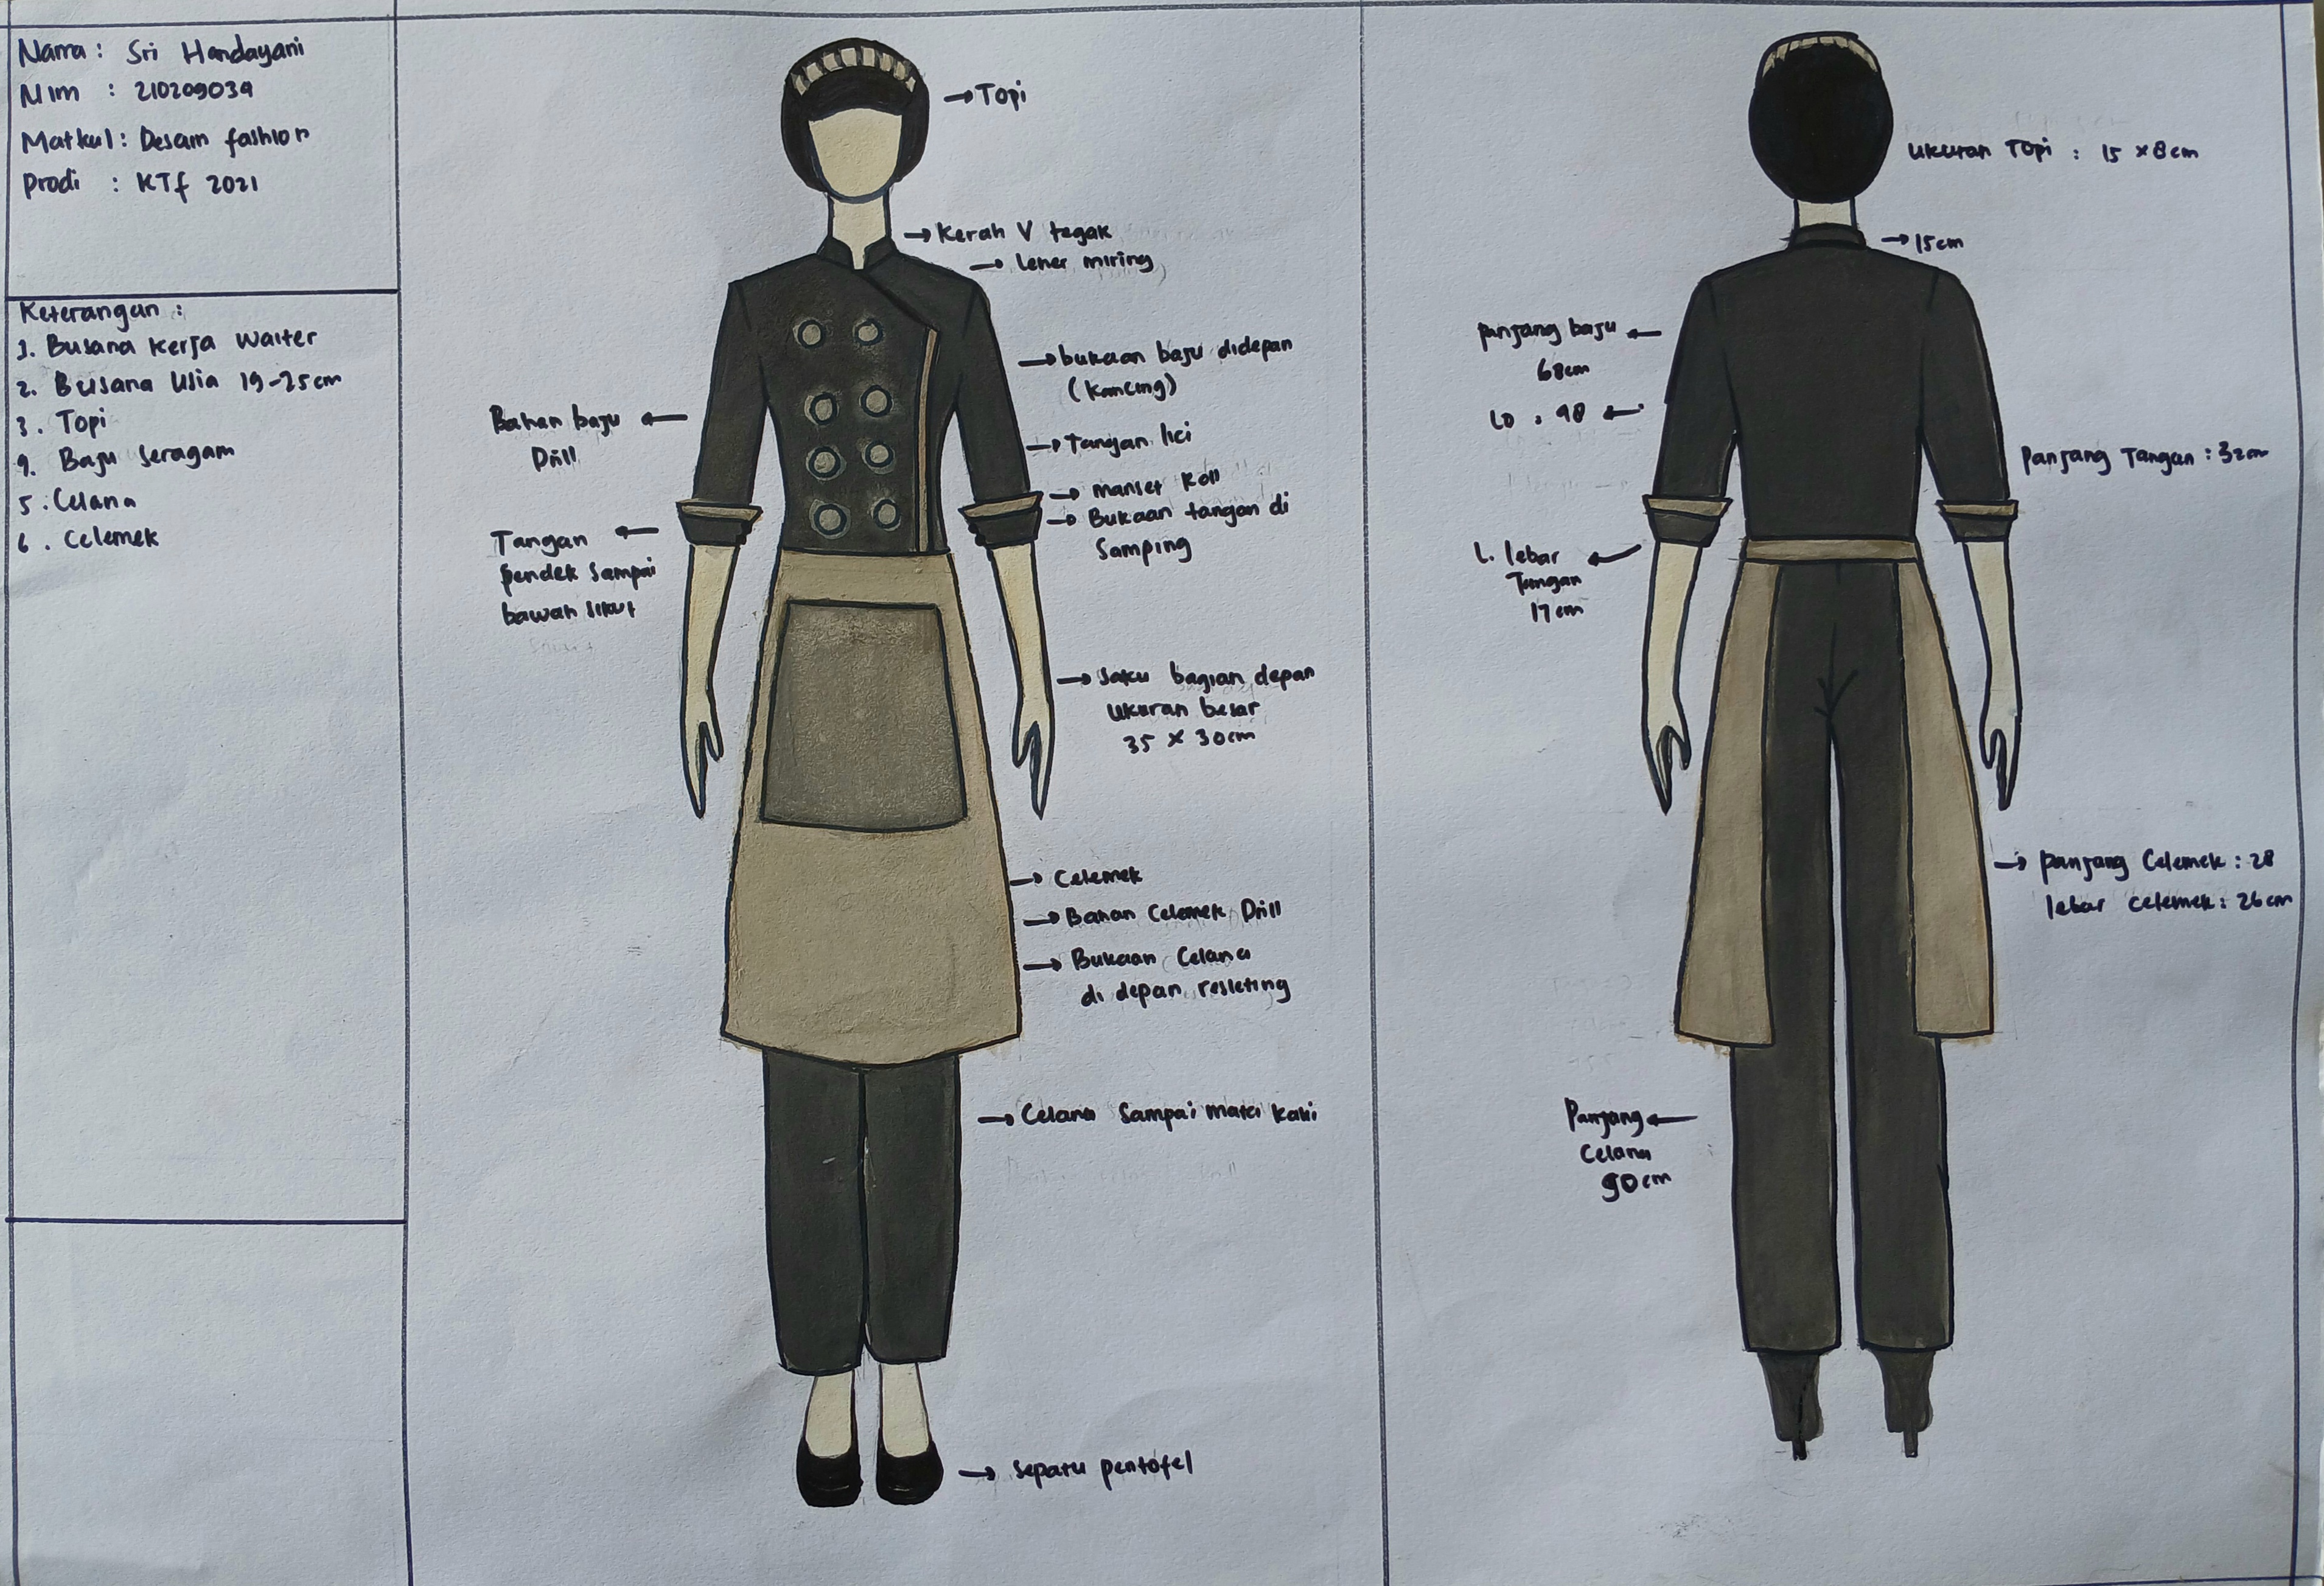 Nama : Sri Handayani
Nim : 210209039
Matkul : Desain fashion
Prodi : KTf 2021
Keterangan :
1. Busana Kerja Waiter
2. Busana Usia 19-25cm
3. Topi
4. Baju Seragam
5. Celana
6. Celemek
Topi
Kerah V tegak
leher miring
bukaan baju didepan
(kancing)
Tangan lici
manset Roll
Bukaan tangan di
Samping
Bahan baju
Drill
Tangan
pendek sampai
bawah sikut
Saku bagian depan
ukuran besar
35 x 30cm
Celemek
Bahan Celemek Drill
Bukaan Celana
di depan resleting
Celana Sampai mata kaki
Sepatu pentofel
ukuran Topi : 15 x 8cm
15cm
panjang baju
68cm
LD : 98
Panjang Tangan : 32cm
L. lebar
Tangan
17cm
panjang Celemek : 28
lebar celemek : 26cm
Panjang
Celana
90cm